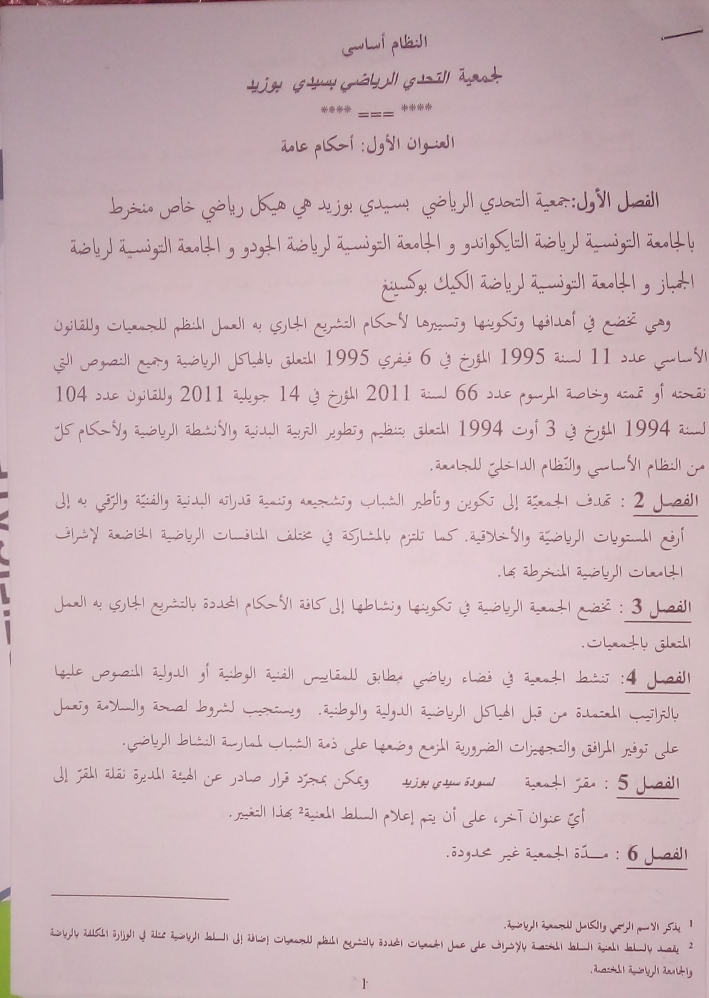 النظام أساسي
لجمعية التحدي الرياضي بسيدي بوزيد
**** === ****
العنوان الأول: أحكام عامة
الفصل الأول:جمعية التحدي الرياضي بسيدي بوزيد هي هيكل رياضي خاص منخرط
بالجامعة التونسية لرياضة التايكواندو و الجامعة التونسية لرياضة الجودو و الجامعة التونسية لرياضة
الجمباز و الجامعة التونسية لرياضة الكيك بوكسينغ
وهي تخضع في أهدافها وتكوينها وتسييرها لأحكام التشريع الجاري به العمل المنظم للجمعيات وللقانون
الأساسي عدد 11 لسنة 1995 المؤرخ في 6 فيفري 1995 المتعلق بالهياكل الرياضية وجميع النصوص التي
نقحته أو تممته وخاصة المرسوم عدد 66 لسنة 2011 المؤرخ في 14 جويلية 2011 وللقانون عدد 104
لسنة 1994 المؤرخ في 3 أوت 1994 المتعلق بتنظيم وتطوير التربية البدنية والأنشطة الرياضية ولأحكام كلّ
من النظام الأساسي والنّظام الداخليّ للجامعة.
الفصل 2 : تهدف الجمعيّة إلى تكوين وتأطير الشباب وتشجيعه وتنمية قدراته البدنية والفنيّة والرّقي به إلى
أرفع المستويات الرياضيّة والأخلاقية. كما تلتزم بالمشاركة في مختلف المنافسات الرياضية الخاضعة لإشراف
الجامعات الرياضية المنخرطة بها.
الفصل 3 : تخضع الجمعية الرياضية في تكوينها ونشاطها إلى كافة الأحكام المحددة بالتشريع الجاري به العمل
المتعلق بالجمعيات.
الفصل 4: تنشط الجمعية في فضاء رياضي مطابق للمقاييس الفنية الوطنية أو الدولية المنصوص عليها
بالتراتيب المعتمدة من قبل الهياكل الرياضية الدولية والوطنية. ويستجيب لشروط لصحة والسلامة وتعمل
على توفير المرافق والتجهيزات الضرورية المزمع وضعها على ذمة الشباب لممارسة النشاط الرياضي.
الفصل 5 : مقرّ الجمعية لسودة سيدي بوزيد ويمكن بمجرّد قرار صادر عن الهيئة المديرة نقلة المقرّ إلى
أيّ عنوان آخر، على أن يتم إعلام السلط المعنية² بهذا التغيير.
الفصل 6 : مـــدّة الجمعية غير محدودة.
¹ يذكر الاسم الرسمي والكامل للجمعية الرياضية.
² يقصد بالسلط المعنية السلط المختصة بالإشراف على عمل الجمعيات المحددة بالتشريع المنظم للجمعيات إضافة إلى السلط الرياضية ممثلة في الوزارة المكلفة بالرياضة
والجامعة الرياضية المختصة.
1